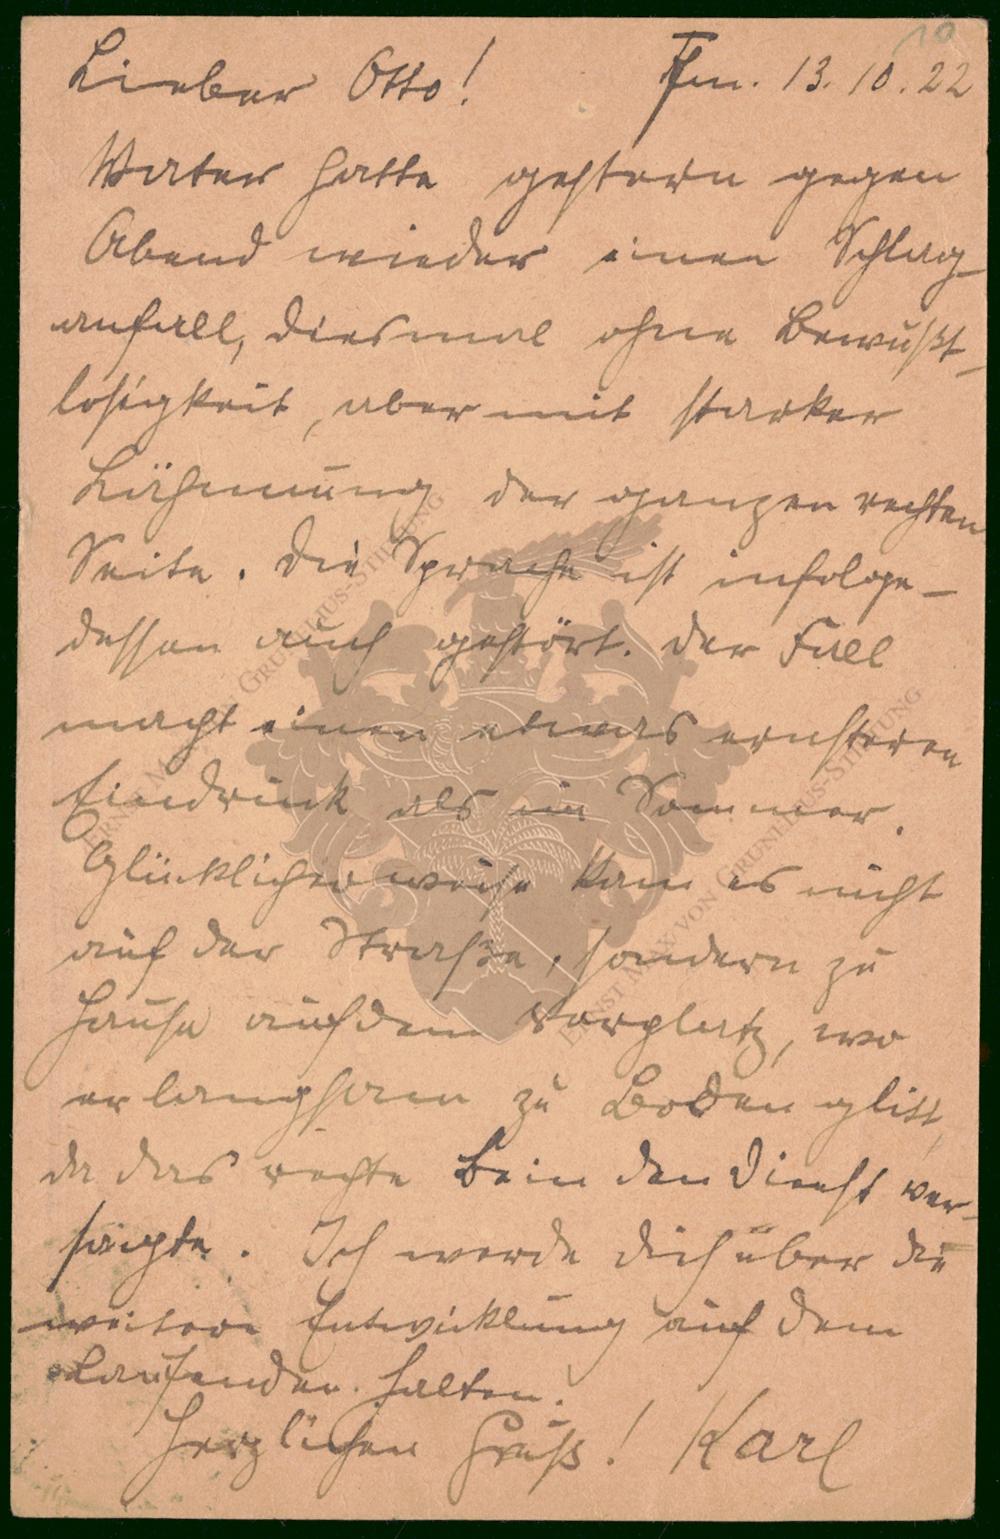 Lieber Otto! Ffm. 13.10.22
Vater hatte gestern gegen
Abend wieder einen Schlag-
anfall, diesmal ohne Bewußt-
losigkeit, aber mit starker
Lähmung der ganzen rechten
Seite. Die Sprache ist infolge-
dessen auch gestört. Der Fall
macht einen etwas ernsteren
Eindruck als im Sommer.
Glücklicherweise kam es nicht
auf der Straße, sondern zu
Hause auf dem Vorplatz, wo
er langsam zu Boden glitt,
da das rechte Bein den Dienst ver-
sagte. Ich werde dich über die
weitere Entwicklung auf dem
Laufenden halten.
Herzlichen Gruß! Karl
10
ERNST MAX VON GRUNELIUS-STIFTUNG
ERNST MAX VON GRUNELIUS-STIFTUNG